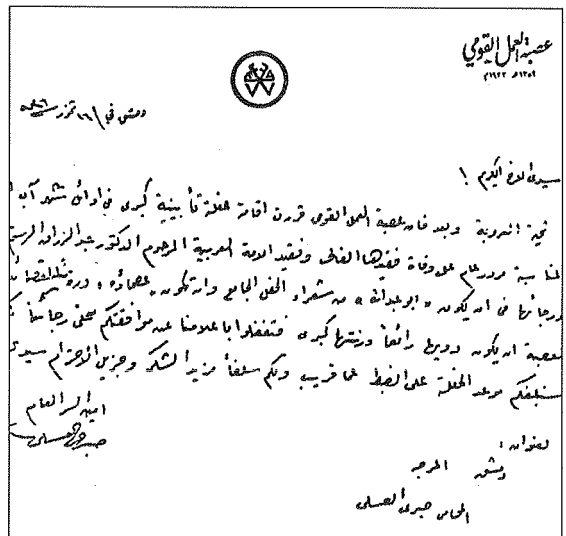 عصبة العمل القومي
دمشق في ١٦ تموز
سيدي الاخ الكريم !
تحية العروبة وبعد فان عصبة العمل القومي قررت اقامة حفلة تأبينية كبرى في اوائل شهر آب
لمناسبة مرور عام على وفاة فقيدها الغالي وفقيد الامة العربية المرحوم الدكتور عبد الرزاق
ورجائها في ان يكون « ابو عبدالله » من شعراء الحفل الجامع وان تكون
العصبة ان يكون دويها رائعاً ورنتها كبرى فتفضلوا باعلامنا عن موافقتكم
سنبلغكم موعد الحفلة على الضبط عما قريب ولكم سلفاً مزيد الشكر وجزيل الاحترام سيدي
امين السر العام
صبري العسلي
العنوان :
دمشق المرجه
المحامي صبري العسلي